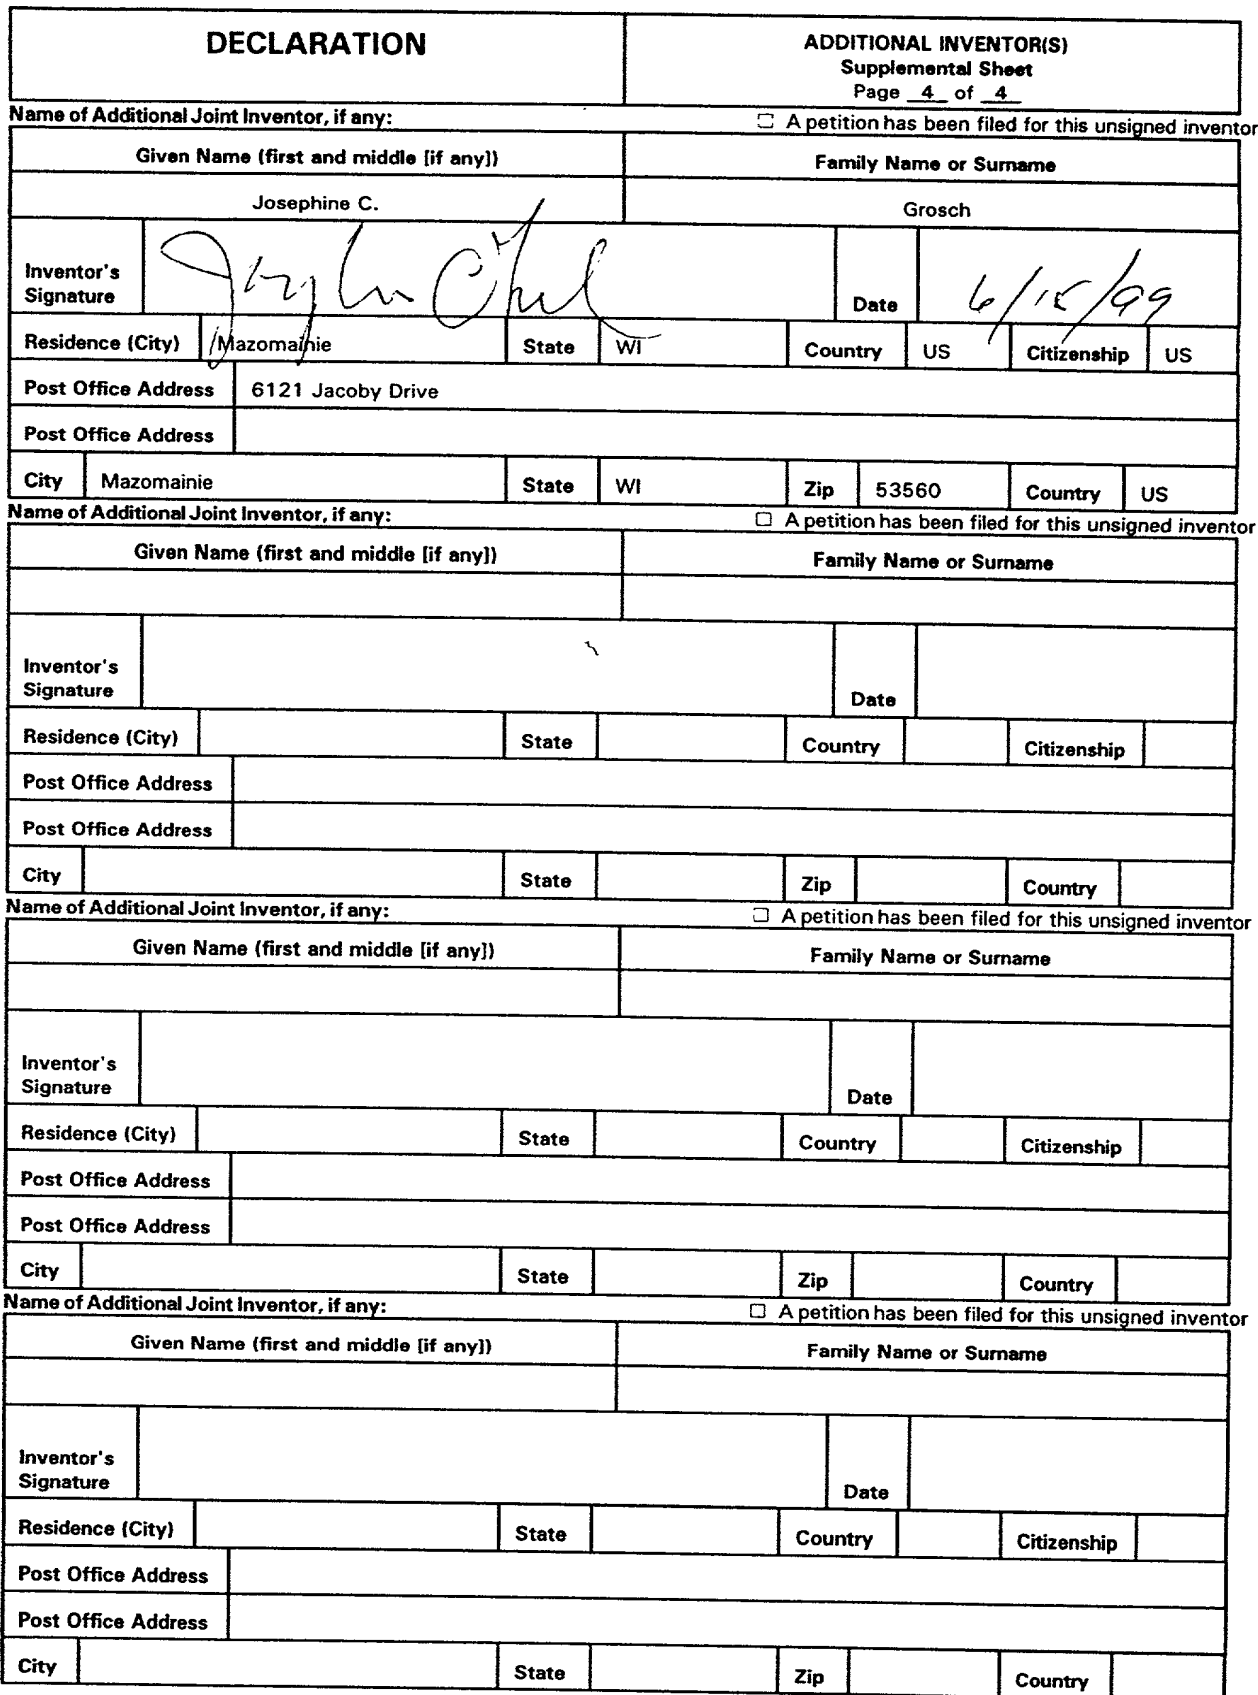 DECLARATION
ADDITIONAL INVENTOR(S)
Supplemental Sheet
Page 4 of 4
Name of Additional Joint Inventor, if any:
☐ A petition has been filed for this unsigned inventor
Given Name (first and middle [if any])
Family Name or Surname
Josephine C.
Grosch
Inventor's
Signature
Date
6/15/99
Residence (City)
Mazomainie
State
WI
Country
US
Citizenship
US
Post Office Address
6121 Jacoby Drive
Post Office Address
City
Mazomainie
State
WI
Zip
53560
Country
US
Name of Additional Joint Inventor, if any:
☐ A petition has been filed for this unsigned inventor
Given Name (first and middle [if any])
Family Name or Surname
Inventor's
Signature
Date
Residence (City)
State
Country
Citizenship
Post Office Address
Post Office Address
City
State
Zip
Country
Name of Additional Joint Inventor, if any:
☐ A petition has been filed for this unsigned inventor
Given Name (first and middle [if any])
Family Name or Surname
Inventor's
Signature
Date
Residence (City)
State
Country
Citizenship
Post Office Address
Post Office Address
City
State
Zip
Country
Name of Additional Joint Inventor, if any:
☐ A petition has been filed for this unsigned inventor
Given Name (first and middle [if any])
Family Name or Surname
Inventor's
Signature
Date
Residence (City)
State
Country
Citizenship
Post Office Address
Post Office Address
City
State
Zip
Country